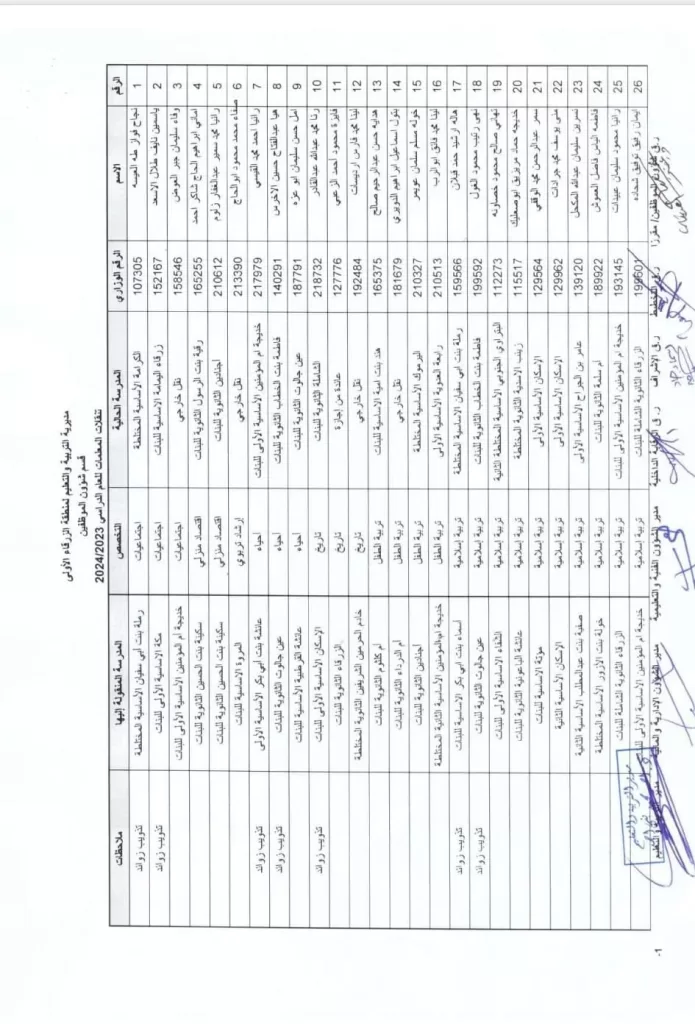 مديرية التربية والتعليم لمنطقة الزرقاء الأولى
قسم شؤون الموظفين
تنقلات المعلمات للعام الدراسي 2024/2023
الرقم الاسم الرقم الوزاري المدرسة الحالية التخصص المدرسة المنقولة إليها ملاحظات
1 نجاح فواز طه العبسه 107305 الكرامة الأساسية المختلطة اجتماعيات رملة بنت أبي سفيان الأساسية المختلطة تذويب زوائد
2 ياسمين نايف طلال الاسعد 152167 زرقاء اليمامة الأساسية للبنات اجتماعيات مكة الأساسية الأولى للبنات تذويب زوائد
3 وفاء سليمان جبر العوض 158546 نقل خارجي اجتماعيات خديجة أم المؤمنين الأساسية الأولى للبنات
4 اماني ابراهيم الحاج شاكر احمد 165255 رقية بنت الرسول الثانوية للبنات اقتصاد منزلي سكينة بنت الحسين الثانوية للبنات
5 رانيا محمد سمير عبدالغفار زلوم 210612 أجنادين الثانوية للبنات اقتصاد منزلي سكينة بنت الحسين الثانوية للبنات
6 صفاء محمد محمود ابوالحاج 213390 نقل خارجي إرشاد تربوي المروة الأساسية للبنات
7 رانيا احمد محمد القيسي 217979 خديجة أم المؤمنين الأساسية الأولى للبنات أحياء عائشة بنت أبي بكر الأساسية الأولى تذويب زوائد
8 هيا عبدالفتاح حسين الاخرس 140291 فاطمة بنت الخطاب الثانوية للبنات أحياء عين جالوت الثانوية للبنات تذويب زوائد
9 امل حسن سليمان ابو عزه 187791 عين جالوت الثانوية للبنات أحياء عائشة القرطبية الأساسية للبنات
10 رنا محمد عبدالله عبدالقادر 218732 الشاملة الثانوية للبنات تاريخ الإسكان الأساسية الأولى للبنات تذويب زوائد
11 فايزة محمود احمد الزعبي 127776 عائدة من إجازة تاريخ الزرقاء الثانوية للبنات
12 لينا محمد فارس ارديسات 192484 نقل خارجي تاريخ خادم الحرمين الشريفين الثانوية المختلطة
13 هدايه حسن عبدالرحيم صالح 165375 هند بنت أمية الأساسية للبنات تربية الطفل أم كلثوم الثانوية للبنات
14 بتول اسماعيل ابراهيم الدويري 181679 نقل خارجي تربية الطفل أم الدرداء الثانوية للبنات
15 خوله مسلم سلمان عويمر 210327 اليرموك الأساسية المختلطة تربية الطفل أجنادين الثانوية للبنات
16 لينا محمد فائق ابوالرب 210513 رابعة العدوية الأساسية الأولى تربية الطفل خديجة أم المؤمنين الأساسية الثانية المختلطة
17 هاله ارشيد حمد قبلان 159566 رملة بنت أبي سفيان الأساسية المختلطة تربية إسلامية أسماء بنت أبي بكر الأساسية للبنات تذويب زوائد
18 نهى رتيب محمود الغول 199592 فاطمة بنت الخطاب الثانوية للبنات تربية إسلامية عين جالوت الثانوية للبنات تذويب زوائد
19 تهاني صالح محمود خصاونه 112273 البتراوي الجنوبي الأساسية المختلطة الثانية تربية إسلامية الشفاء الأساسية الأولى للبنات
20 خديجه حماد مريزيق ابوصعليك 115517 زينب الأسدية الثانوية المختلطة تربية إسلامية عائشة الباعونية الثانوية للبنات
21 سمر عبدالرحمن محمد الوقفي 129564 الإسكان الأساسية الأولى تربية إسلامية مؤتة الأساسية للبنات
22 منى يوسف محمد جرادات 129962 الإسكان الأساسية الأولى تربية إسلامية الإسكان الأساسية الثانية
23 نسرين سليمان عبدالله المكحل 139120 عامر بن الجراح الأساسية الأولى تربية إسلامية صفية بنت عبدالمطلب الأساسية الثانية
24 فاطمه الياس فاضل العموش 189922 أم سلمة الثانوية للبنات تربية إسلامية خولة بنت الأزور الأساسية المختلطة
25 رانيا محمود سليمان عبيدات 193145 خديجة أم المؤمنين الأساسية الأولى للبنات تربية إسلامية الزرقاء الثانوية الشاملة للبنات
26 ايمان رفيق توفيق شحاده 199601 الزرقاء الثانوية الشاملة للبنات تربية إسلامية خديجة أم المؤمنين الأساسية الأولى للبنات
ر.ق شؤون الموظفين/ مقررا ر.ق التخطيط ر.ق الإشراف ر.ق الرقابة الداخلية مدير الشؤون الفنية والتعليمية مدير الشؤون الإدارية والمالية مدير التربية والتعليم
-١